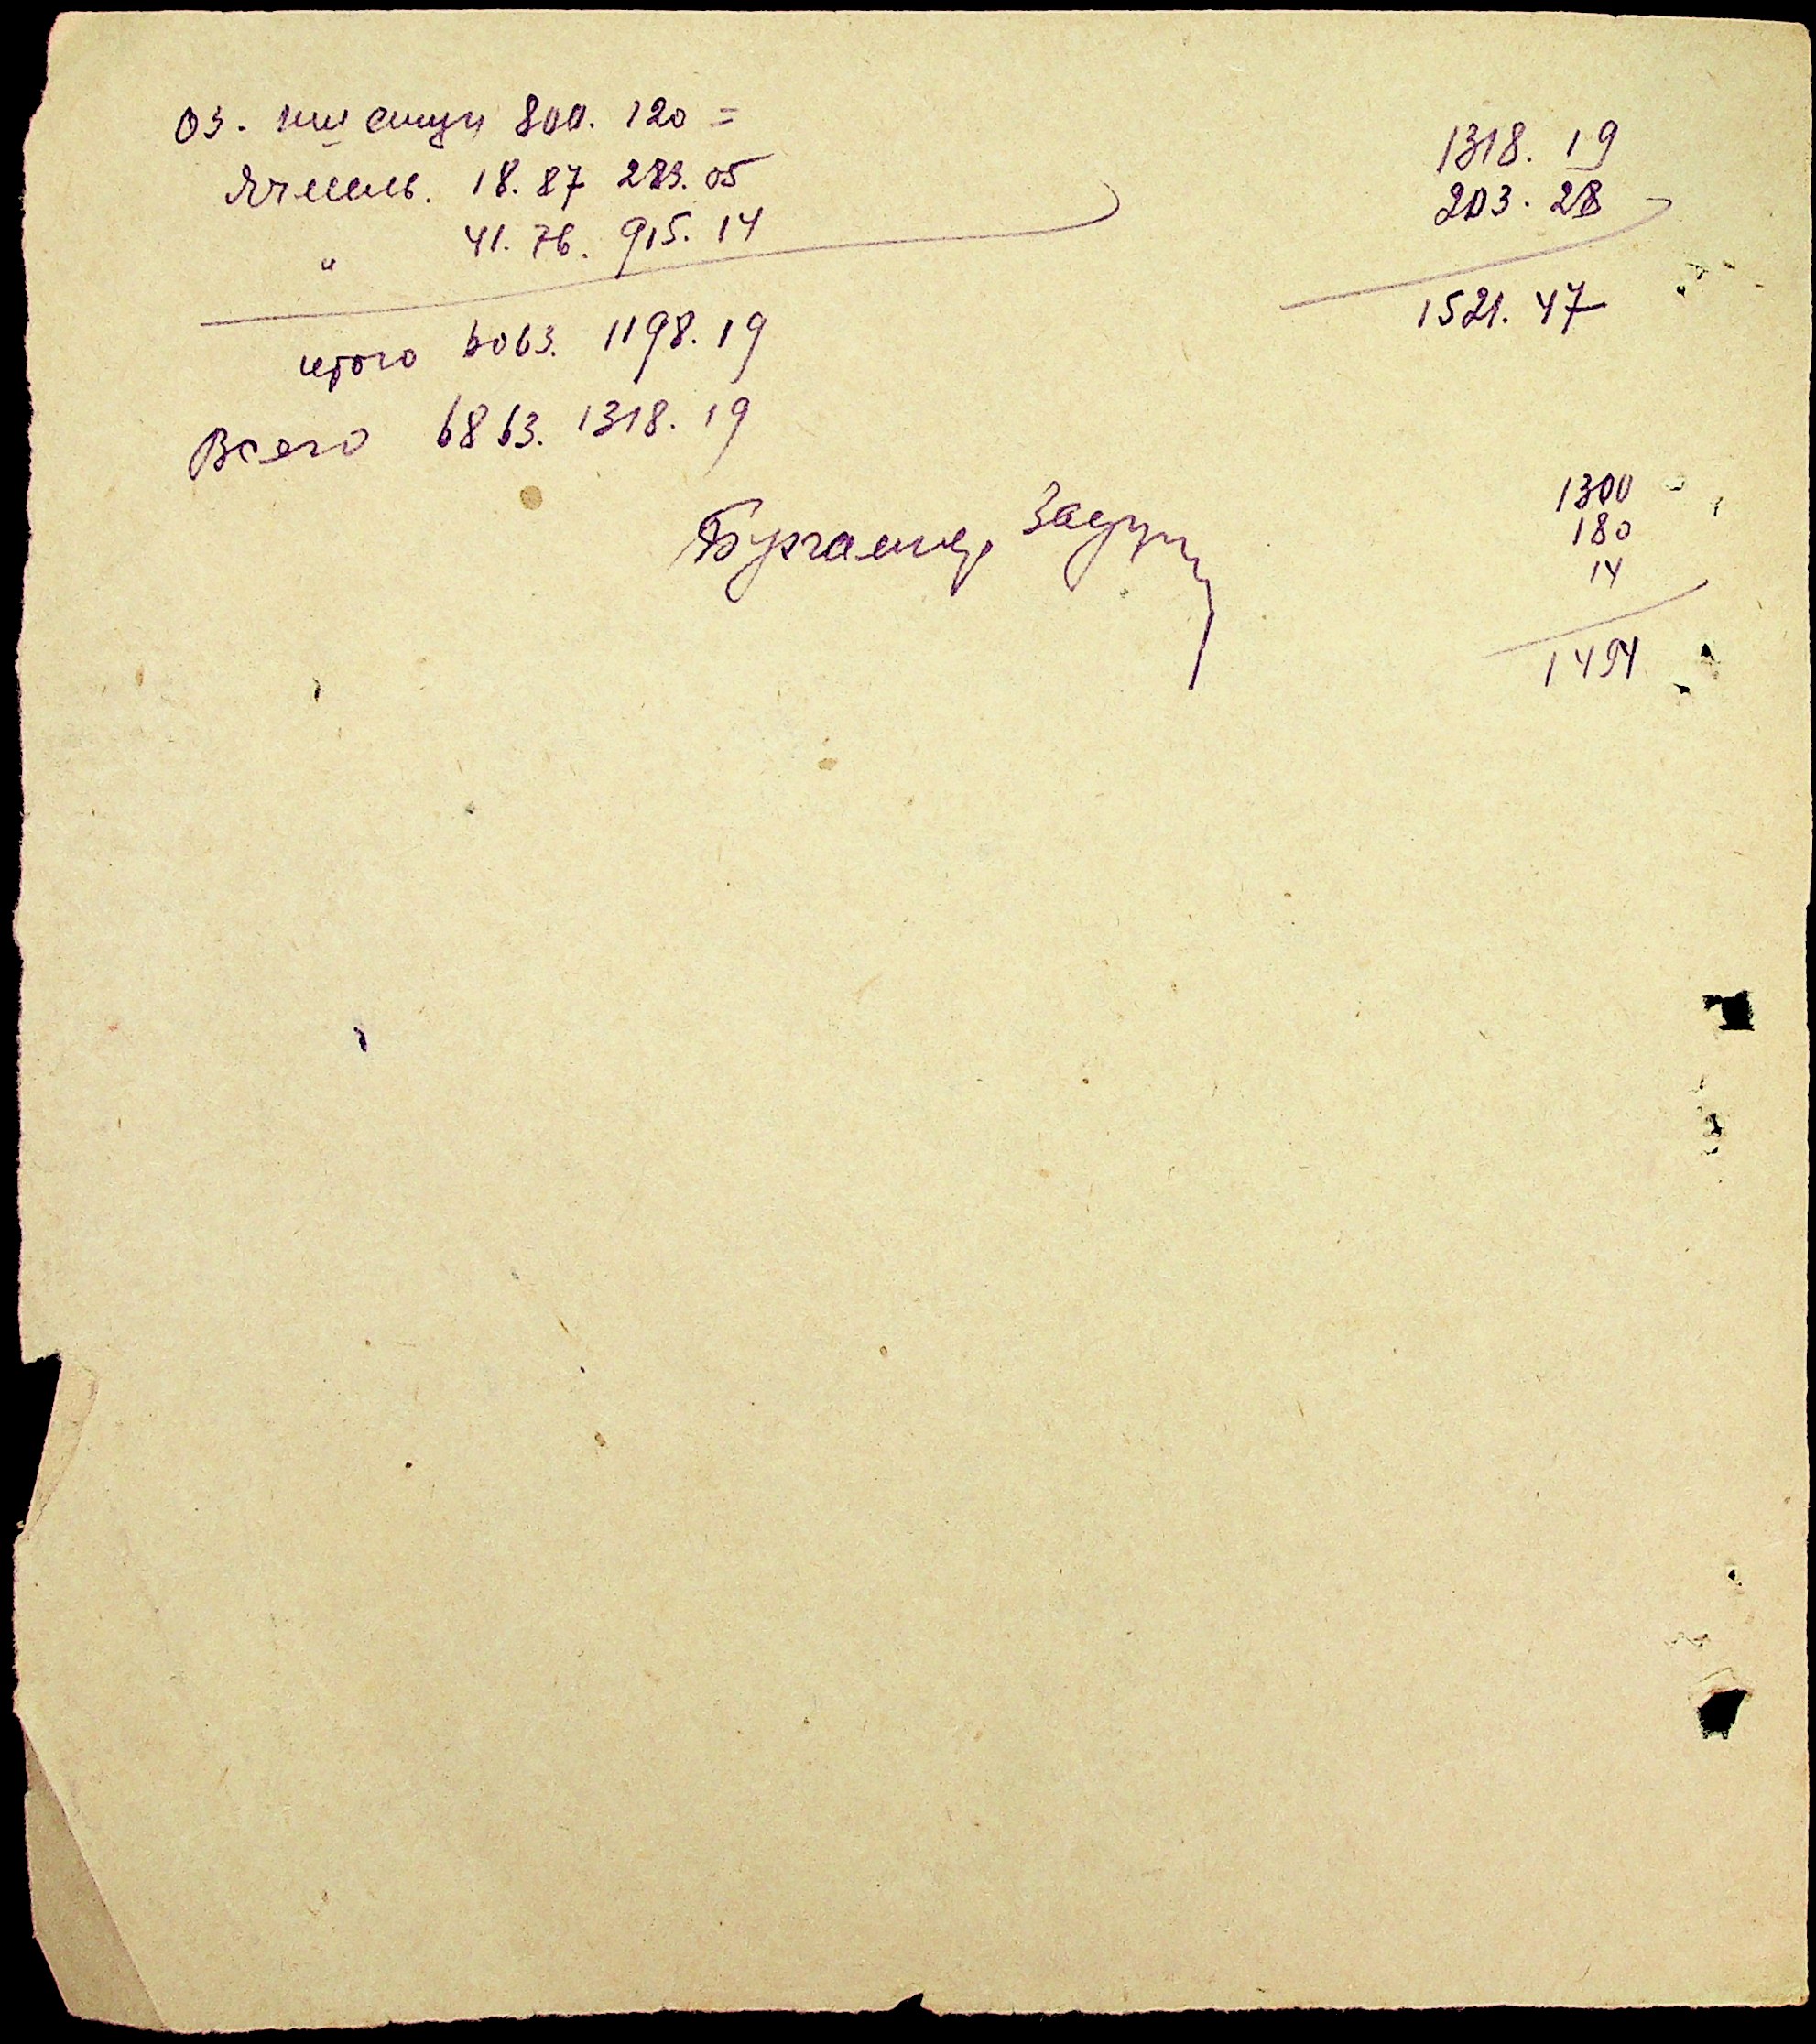 Оз. пшеницы 800. 120 =
Ячмень. 18.87 283.05
" 41.76. 915.14
итого 6063. 1198.19
Всего 6863. 1318.19
Бухгалтер
1318.19
203.28
1521.47
1300
180
14
1494